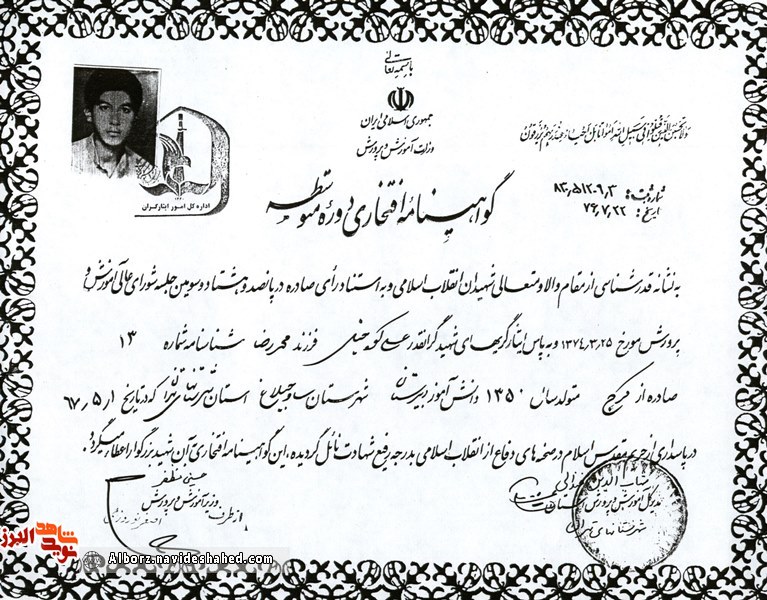 باسمه تعالی
جمهوری اسلامی ایران
وزارت آموزش و پرورش
ولا تحسبن الذین قتلوا فی سبیل الله امواتا بل احیاء عند ربهم یرزقون
اداره کل امور ایثارگران
شماره ثبت: ۸۳٫۵۱۲۰۹٫۳
تاریخ: ۷۶٫۷٫۲۲
گواهینامهٔ افتخاری دورهٔ متوسطه
به نشانه قدرشناسی از مقام والا و متعالی شهیدان انقلاب اسلامی و به استناد رأی صادره در پانصد و هشتاد و سومین جلسه شورای عالی آموزش و
پرورش مورخ ۱۳۷۴٫۳٫۲۵ و به پاس ایثارگریهای شهید گرانقدر علی فرزند محمدرضا شناسنامه شماره ۱۳
صادره از کرج متولد سال ۱۳۵۰ دانش آموز دبیرستان شهرستان ساوجبلاغ استان که در تاریخ ۶۷٫۵٫۱
در پاسداری از حریم مقدس اسلام در صحنه های دفاع از انقلاب اسلامی بدرجه رفیع شهادت نائل گردیده، این گواهینامه افتخاری آن شهید بزرگوار اعطا میگردد.
حسین مظفر
وزیر آموزش و پرورش
از طرف
مدیر کل آموزش و پرورش
شهرستانهای تهران
شاهد
نوید
البرز
Alborz.navideshahed.com